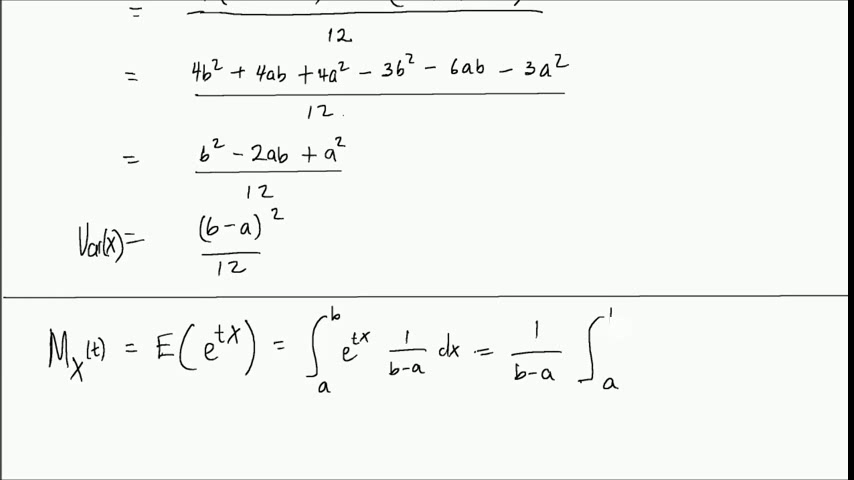 =
12
= 4b² + 4ab + 4a² − 3b² − 6ab − 3a²
12
= b² − 2ab + a²
12
Var(X) = (b−a)²
12
M_X(t) = E(e^{tX}) = ∫_a^b e^{tx} 1/(b−a) dx = 1/(b−a) ∫_a